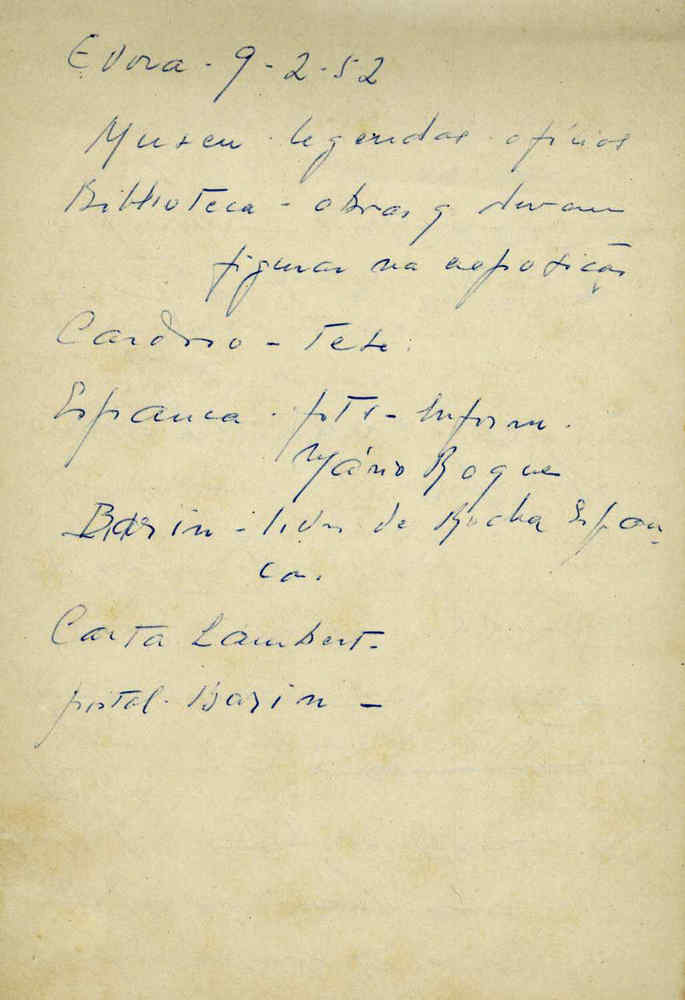 Evora - 9-2-52
Museu - legendas - ofícios
Biblioteca - obras q devam
figurar na exposição
Cardoso - Tese.
Espanca - fots - Inform.
Mário Roque
Bazin - livro de Rocha Espan-
ca.
Carta Lambert -
postal - Bazin -